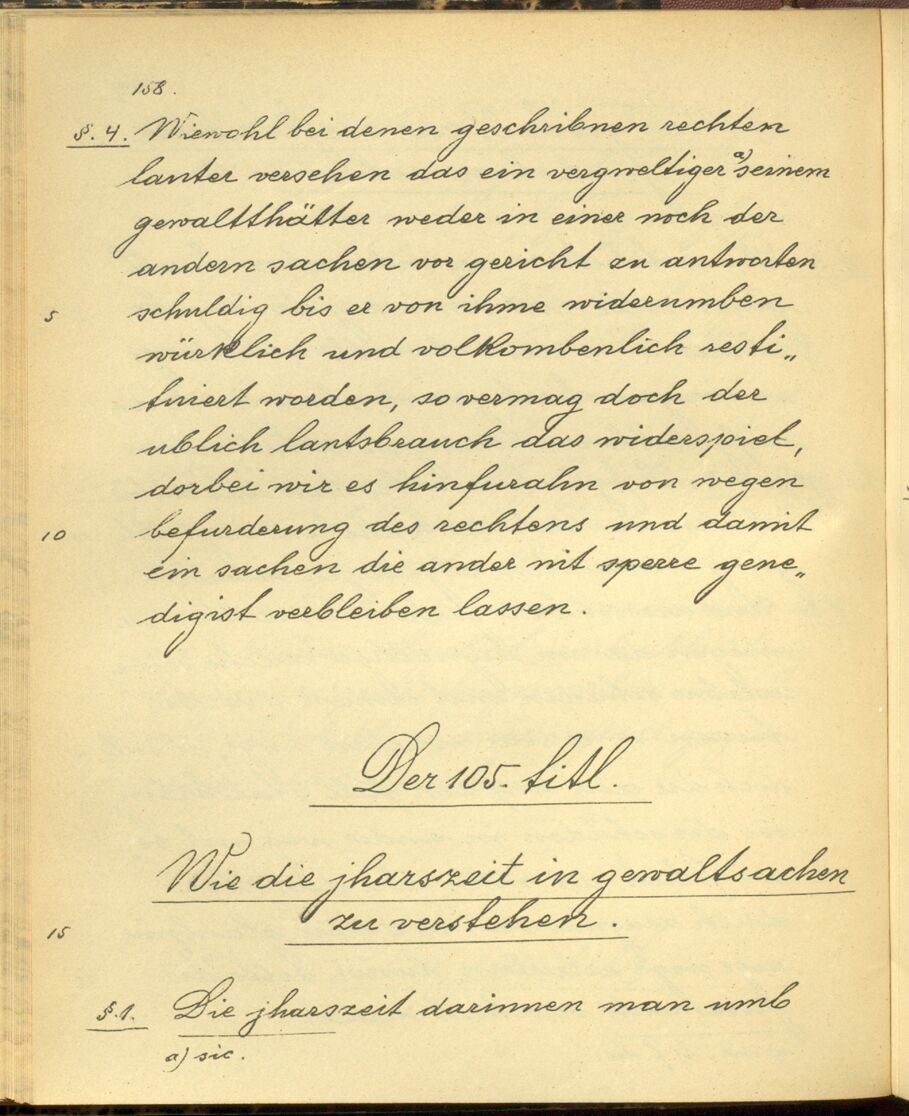 158.
§. 4. Wiewohl bei denen geschribnen rechten
lauter versehen das ein vergweltiger a) seinem
gewaltthätter weder in einer noch der
andern sachen vor gericht zu antworten
5 schuldig bis er von ihme widerumben
würklich und volkombenlich resti„
tuiert worden, so vermag doch der
ublich lantsbrauch das widerspiel,
dorbei wir es hinfurahn von wegen
10 befurderung des rechtens und damit
ein sachen die ander nit sperre gene„
digist verbleiben lassen.
Der 105. titl.
Wie die jharszeit in gewaltsachen
15 zu verstehen.
§. 1. Die jharszeit darinnen man umb
a) sic.